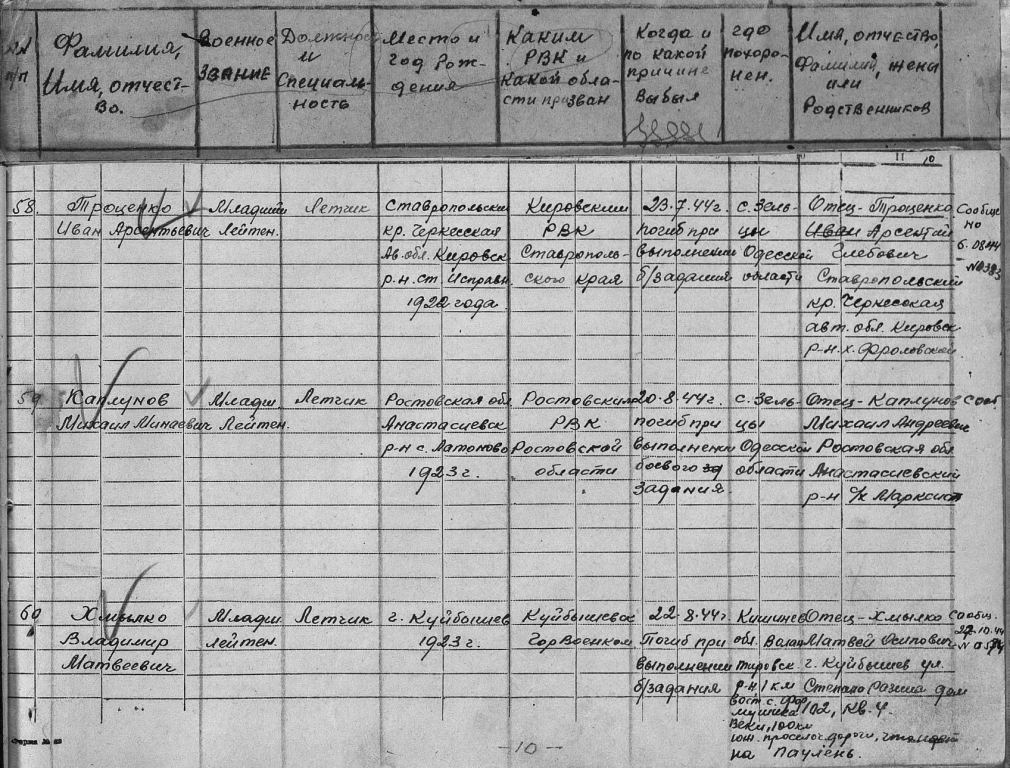 NN п/п
Фамилия, Имя, отчество.
Военное звание
Должность и специальность
Место и год рождения
Каким РВК и какой области призван
Когда и по какой причине выбыл
где похоронен.
Имя, отчество, Фамилия, жены или Родственников
11 10
58. Троценко Младший Летчик Ставропольский Кировским 23.7.44г. с. Зель- Отец-Троценко Сообщ
Иван Арсентьевич Лейтен. кр. Черкесская РВК погиб при цы Иван Арсентий но
Ав.обл. Кировск Ставрополь- выполнении Одесской Глебович
р-н.ст. Исправн ского края б/задания области Ставропольский
1922 года. кр. Черкесская
авт. обл. Кировск
р-н.х. Фроловской
59 Каплунов Младш. Летчик Ростовская обл Ростовским 20.8.44г. с. Зель- Отец-Каплунов Сооб
Михаил Минаевич Лейтен. Анастасиевск РВК погиб при цы Михаил Андреевич
р-н с. Латоново Ростовской выполнении Одесской Ростовская обл
1923г. области боевого зад области Анастасиевский
задания. р-н с/х Марксист
60 Хмылко Младш Летчик г. Куйбышев Куйбышевск 22-8-44г. Кишинев Отец-Хмылко Сообщ.
Владимир лейтен. 1923г. ГорВоенком. Погиб при обл. Матвей Осипович 22-10-44
Матвеевич выполнении тировск. г. Куйбышев ул.
б/задания р-н 1 км Степана Разина дом
вост с. 102, кв. 4.
100км
юж. просёлоч. дороги,
на Паулень.
-10-
Форма №